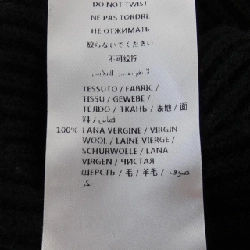 DO NOT TWIST
NE PAS TORDRE
НЕ ОТЖИМАТЬ
絞らないでください
不可拧绞
TESSUTO / FABRIC /
TISSU / GEWEBE /
TEJIDO / ТКАНЬ / 表地 / 面
料 / قماش
100% LANA VERGINE / VIRGIN
WOOL / LAINE VIERGE /
SCHURWOLLE / LANA
VIRGEN / ЧИСТАЯ
ШЕРСТЬ / 毛 / 羊毛 / صوف